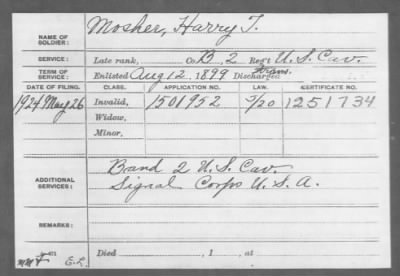 NAME OF SOLDIER: Mosher, Harry T.
SERVICE: Late rank, Co. B, 2 Reg't U.S. Cav.
TERM OF SERVICE: Enlisted Aug 12, 1899 Discharged
DATE OF FILING. CLASS. APPLICATION NO. LAW. CERTIFICATE NO.
1924 May 26 Invalid, 1501952 1251734
Widow,
Minor,
ADDITIONAL SERVICES: Band 2 U.S. Cav.
Signal Corps U.S.A.
REMARKS:
Died , 1 , at